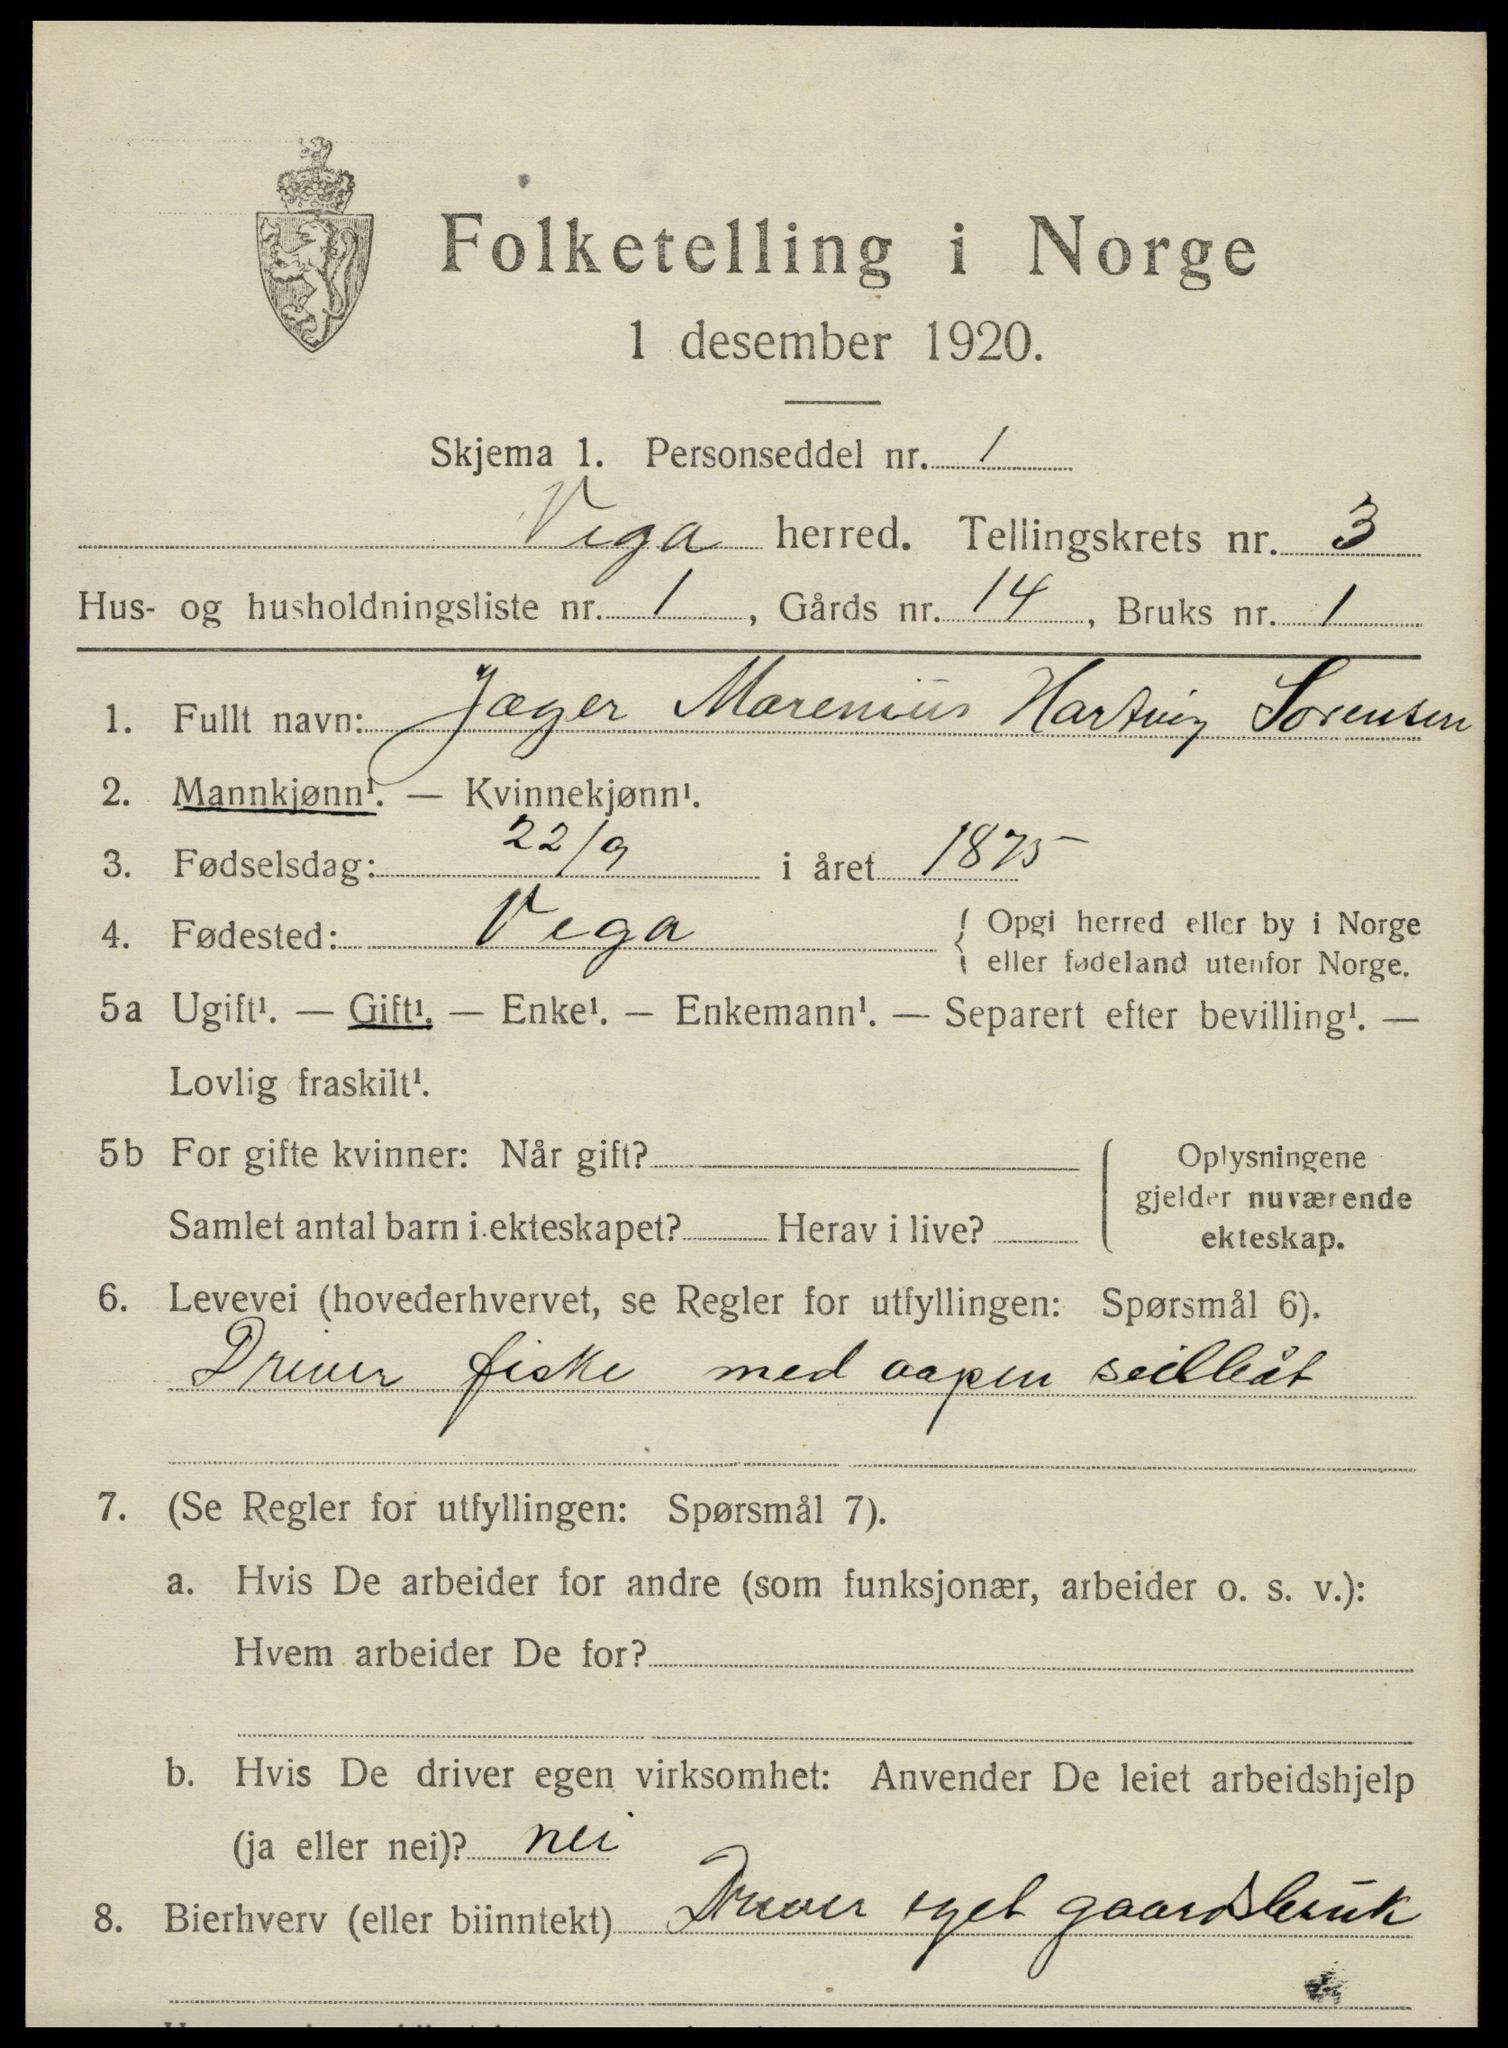 Folketelling i Norge
1 desember 1920.
Skjema 1. Personseddel nr. 1
Vega herred. Tellingskrets nr. 3
Hus- og husholdningsliste nr. 1, Gårds nr. 14, Bruks nr. 1
1. Fullt navn: Jæger Marenius Hartvig Sørensen
2. Mannkjønn¹. — Kvinnekjønn¹.
3. Fødselsdag: 22/9 i året 1875
4. Fødested: Vega { Opgi herred eller by i Norge
eller fødeland utenfor Norge.
5a Ugift¹. — Gift¹. — Enke¹. — Enkemann¹. — Separert efter bevilling¹. —
Lovlig fraskilt¹.
5b For gifte kvinner: Når gift?
Samlet antal barn i ekteskapet? Herav i live?
Oplysningene
gjelder nuværende
ekteskap.
6. Levevei (hovederhvervet, se Regler for utfyllingen: Spørsmål 6).
Driver fiske med aapen seilbåt
7. (Se Regler for utfyllingen: Spørsmål 7).
a. Hvis De arbeider for andre (som funksjonær, arbeider o. s. v.):
Hvem arbeider De for?
b. Hvis De driver egen virksomhet: Anvender De leiet arbeidshjelp
(ja eller nei)? nei
8. Bierhverv (eller biinntekt) Driver eget gaardsbruk